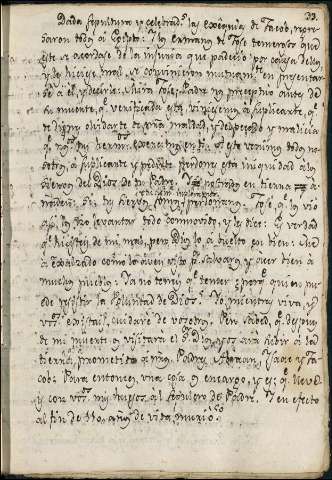 33.
Dada sepultura, y celebradas las exequias de Jacob, regre-
saron todos a Egipto. Los hermanos de Jose temerosos que
este se acordase de la injuria que padeció por causa dellos
y les hiciese mal, se convinieron en presentar-
se a el, y decirle: Mira Jose, Padre nos preceptuo antes de
su muerte, q.e verificada esta viniesemos a suplicarte, q.e
te dignes olvidarte de nra maldad, y del pecado y malicia
q.e con tu herm.o
sotros a suplicarte y pedirte perdones esta iniquidad a los
siervos del Dios de tu Padre. Y postrados en tierra
añaden: Si, tus siervos somos, perdonanos. Jose, q.e los vio
asi, los hizo levantar todo conmovido, y les dice: Es verdad
q.e hicisteis de mi mal, pero Dios lo a buelto en bien: El me
a exaltado como lo aveis visto p.a salvaros, y hacer bien a
muchos pueblos. Ya no teneis q.e temer, porq.e quien pu-
ede resistir la voluntad de Dios? Yo mientras viva, y
vos.s existais, cuidaré de vosotros. Pero sabed, q.e despues
de mi muerte os visitara el S.r Dios, y os ara subir a la
tierra, prometida a nros Padres Abraan, Ysaac y Ja-
cob. Para entonces, una cosa os encargo, y es; q.e lleveis
con vos.s mis huesos al sepulcro de Padre. Y en efecto
al fin de 110. años de vida murió.